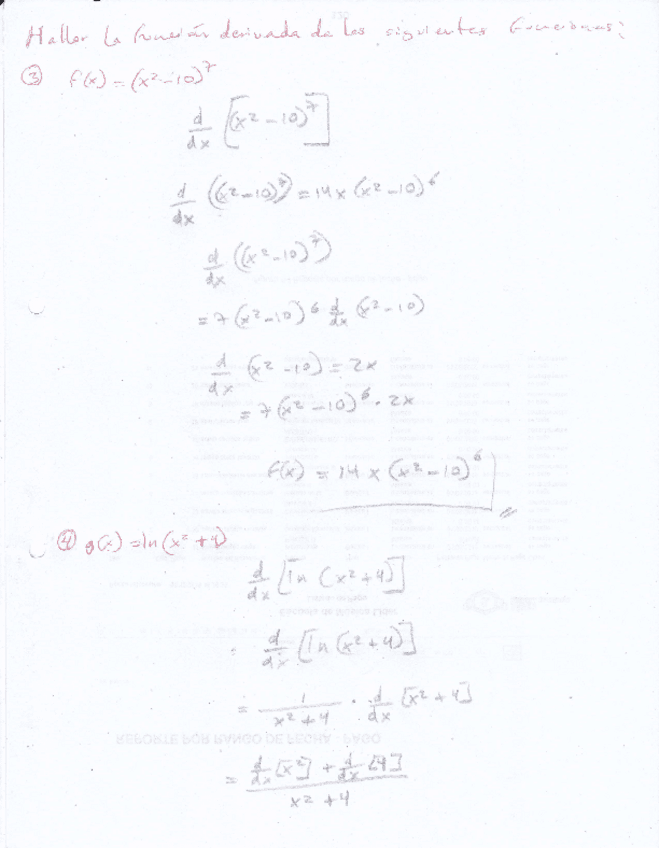 Hallar la función derivada de las siguientes funciones:
③ f(x) = (x²-10)⁷
d/dx [(x²-10)⁷]
d/dx ((x²-10)⁷) = 14x (x²-10)⁶
d/dx ((x²-10)⁷)
= 7 (x²-10)⁶ d/dx (x²-10)
d/dx (x²-10) = 2x
= 7(x²-10)⁶ · 2x
f(x) = 14 x (x²-10)⁶
④ g(x) = ln (x²+4)
d/dx [ln (x²+4)]
= d/dx [ln (x²+4)]
= 1/(x²+4) · d/dx [x²+4]
REPORTE POR RANGO DE FECHA PAGO
= (d/dx [x²] + d/dx [4])/(x²+4)